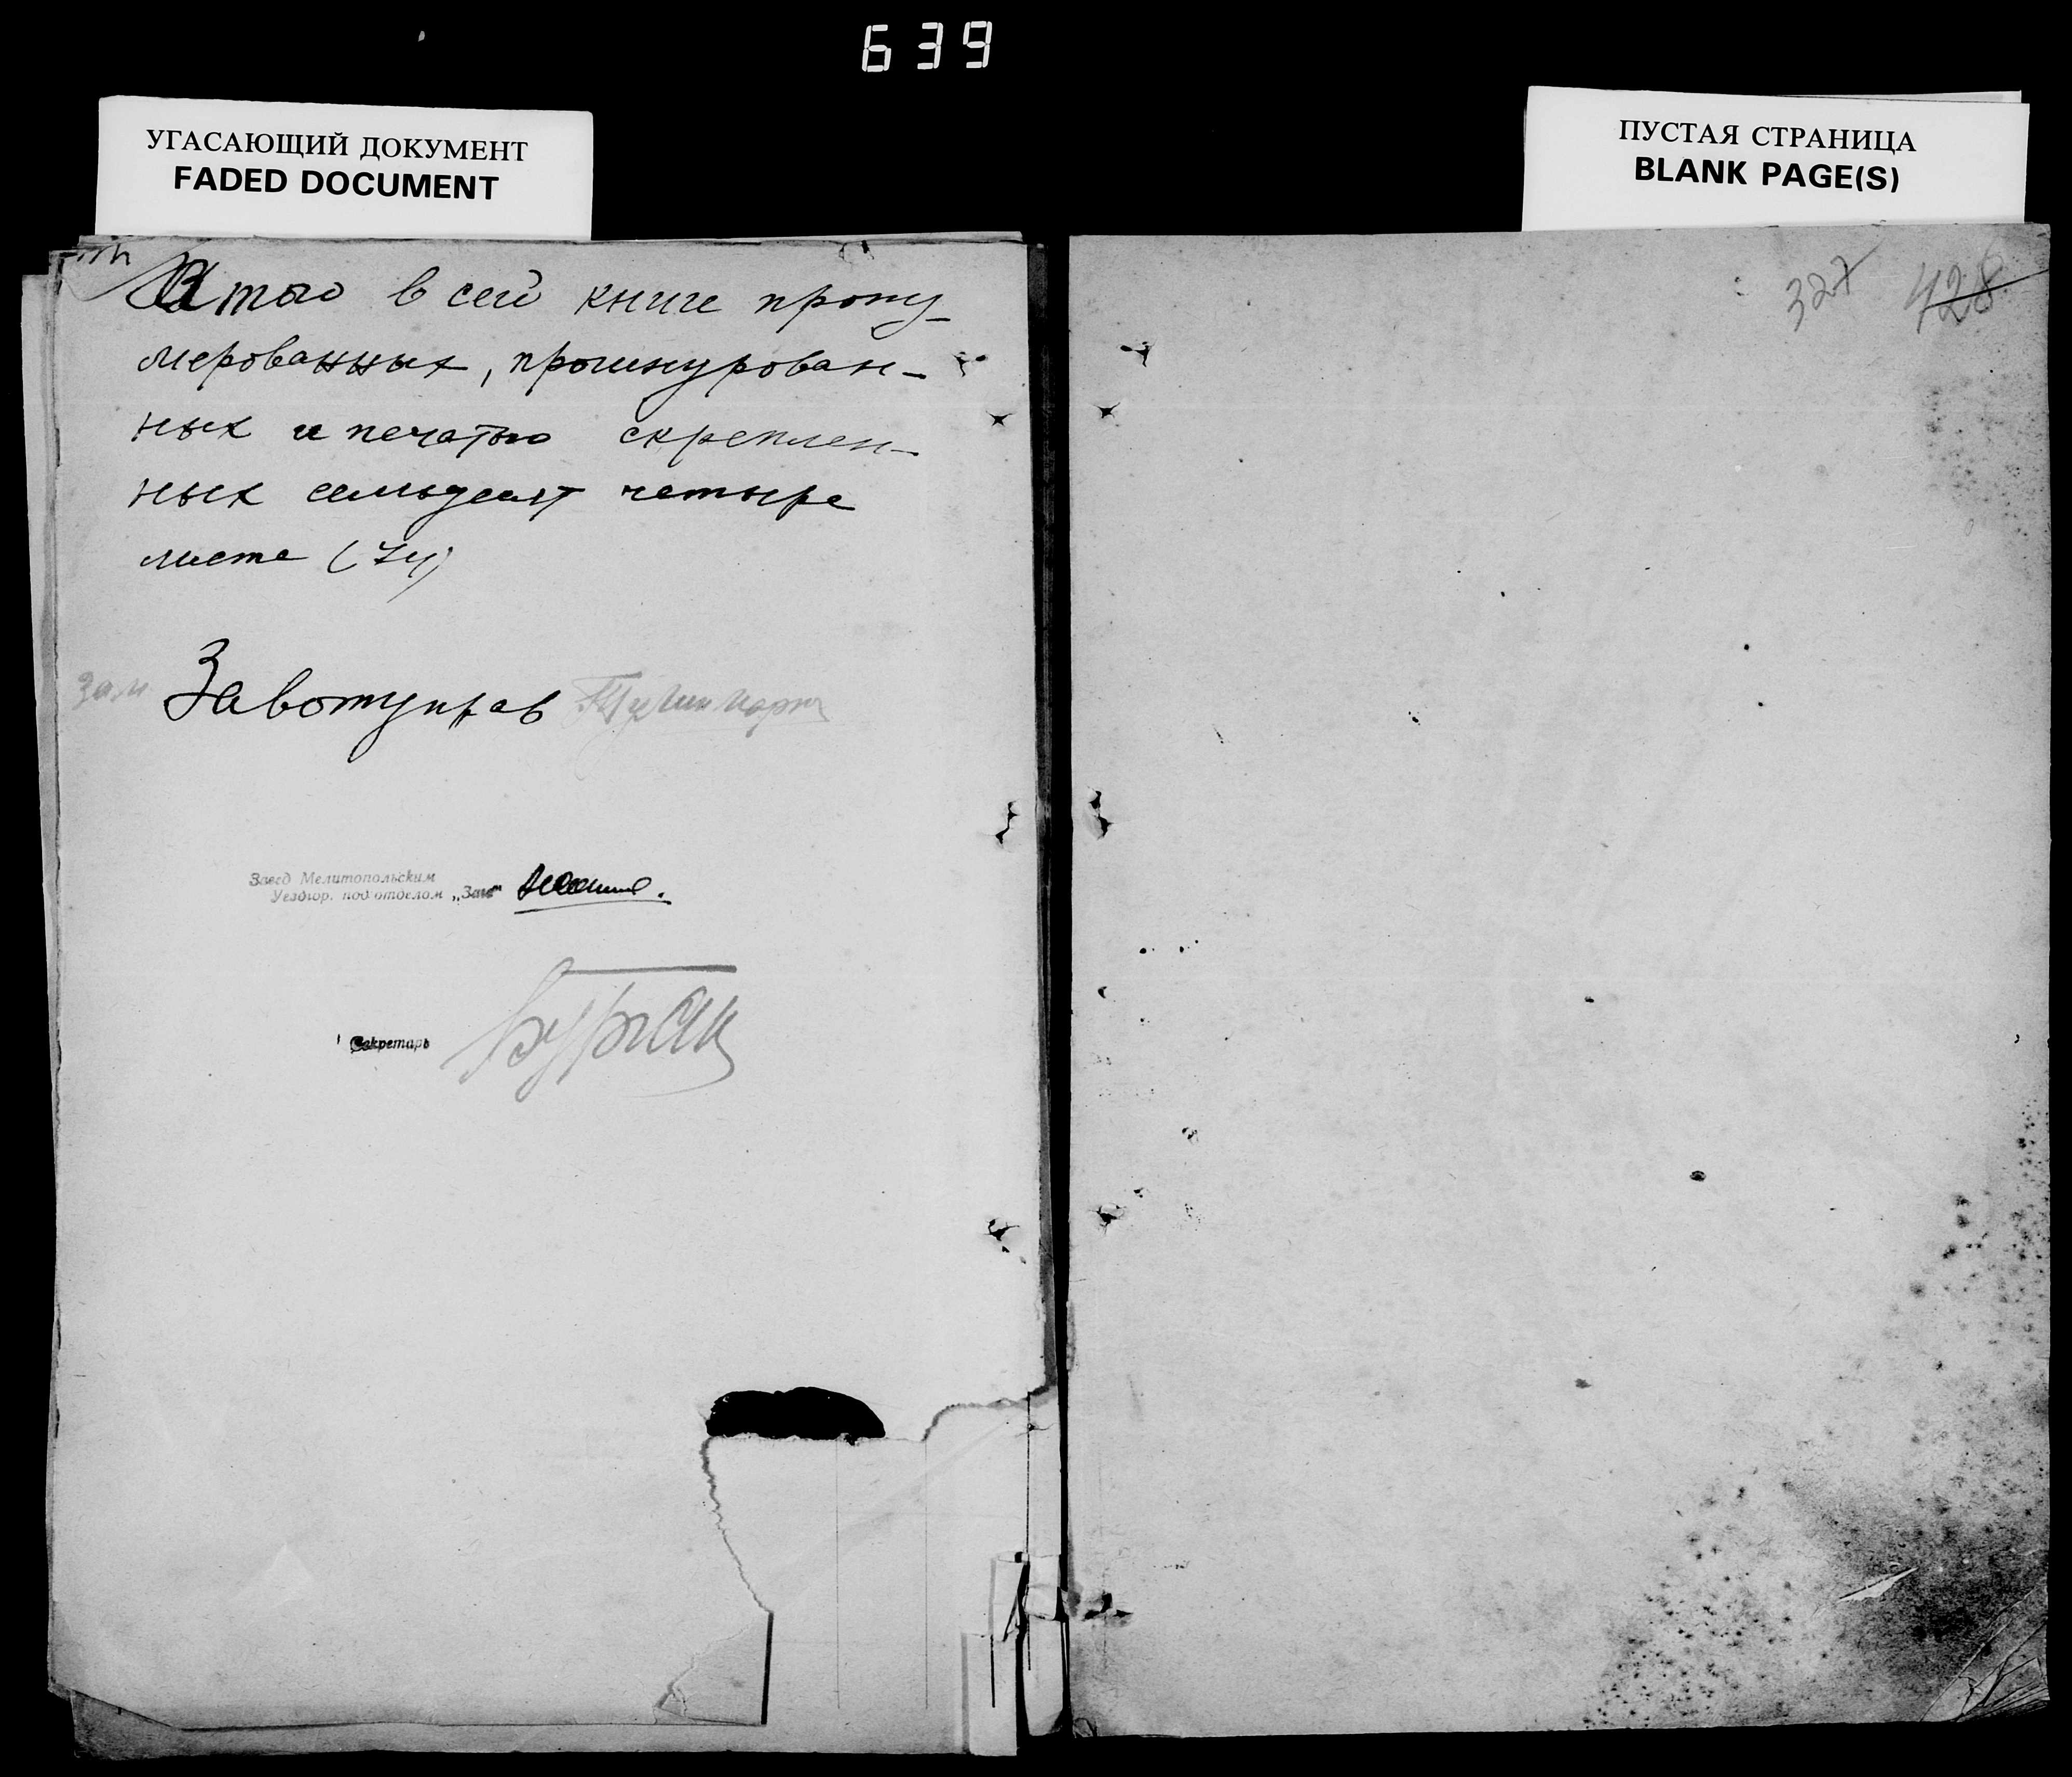 639
УГАСАЮЩИЙ ДОКУМЕНТ
FADED DOCUMENT
ПУСТАЯ СТРАНИЦА
BLANK PAGE(S)
327 428
Итого в сей книге прону-
мерованных, прошнурован-
ных и печатью скреплен-
ных семьдесят четыре
листа (74)
Зам Завотуправ
Завед Мелитопольским
Уездгор. под отделом „Загс"
Секретарь